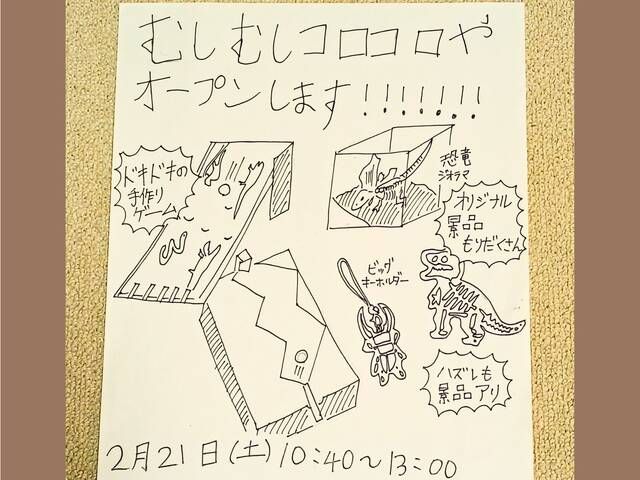 むしむしコロコロや
オープンします!!!!!!!
ドキドキの
手作り
ゲーム
恐竜
ジオラマ
オリジナル
景品
もりだくさん
ビッグ
キーホルダー
ハズレも
景品アリ
2月21日(土)10:40~13:00